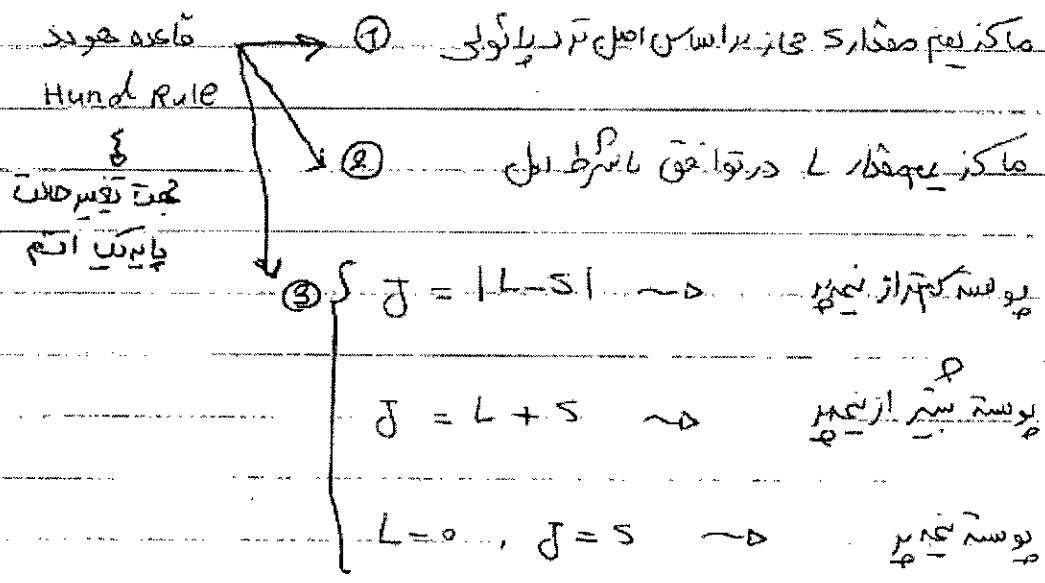 قاعده هوند
Hund Rule
جهت تعیین حالت
پایه یک اتم
① ماکزیمم مقدار S مجاز براساس اصل طرد پائولی
② ماکزیمم مقدار L در توافق با شرط اول
③ { J = |L-S| ⇝ پوسته کمتر از نیمه پر
J = L + S ⇝ پوسته بیشتر از نیمه پر
L=0 , J=S ⇝ پوسته نیمه پر